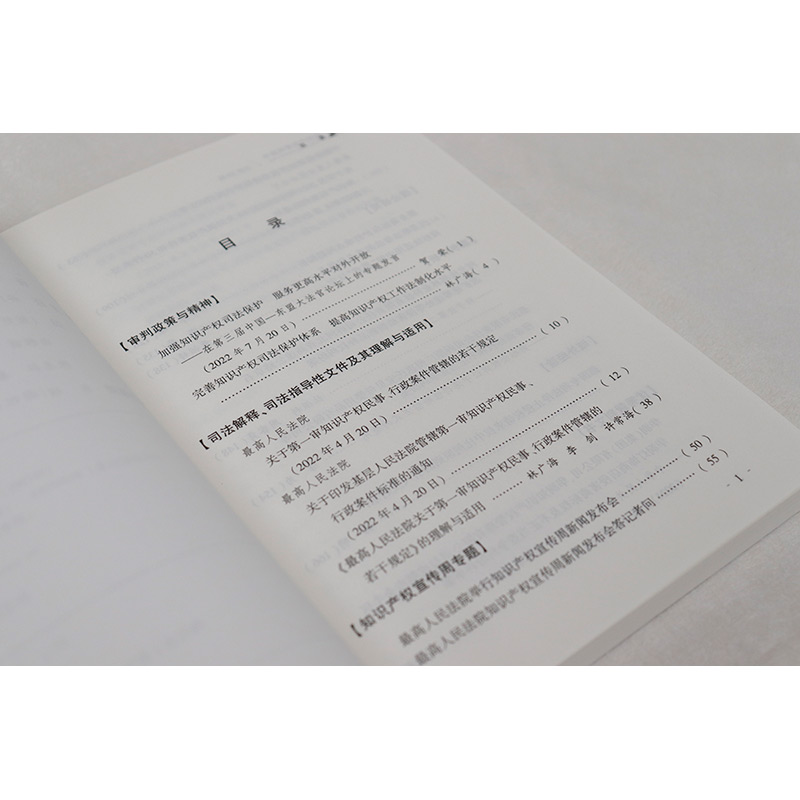 目 录
【审判政策与精神】
加强知识产权司法保护 服务更高水平对外开放
——在第三届中国—东盟大法官论坛上的专题发言
(2022年7月20日)……………………贺 荣(1)
完善知识产权司法保护体系 提高知识产权工作法制化水平
……………………林广海(4)
【司法解释、司法指导性文件及其理解与适用】
最高人民法院
关于第一审知识产权民事、行政案件管辖的若干规定
(2022年4月20日)……………………(10)
最高人民法院
关于印发基层人民法院管辖第一审知识产权民事、
行政案件标准的通知
(2022年4月20日)……………………(12)
《最高人民法院关于第一审知识产权民事、行政案件管辖的
若干规定》的理解与适用……林广海 李 剑 许常海(38)
【知识产权宣传周专题】
最高人民法院举行知识产权宣传周新闻发布会……(50)
最高人民法院知识产权宣传周新闻发布会答记者问……(55)
- 1 -